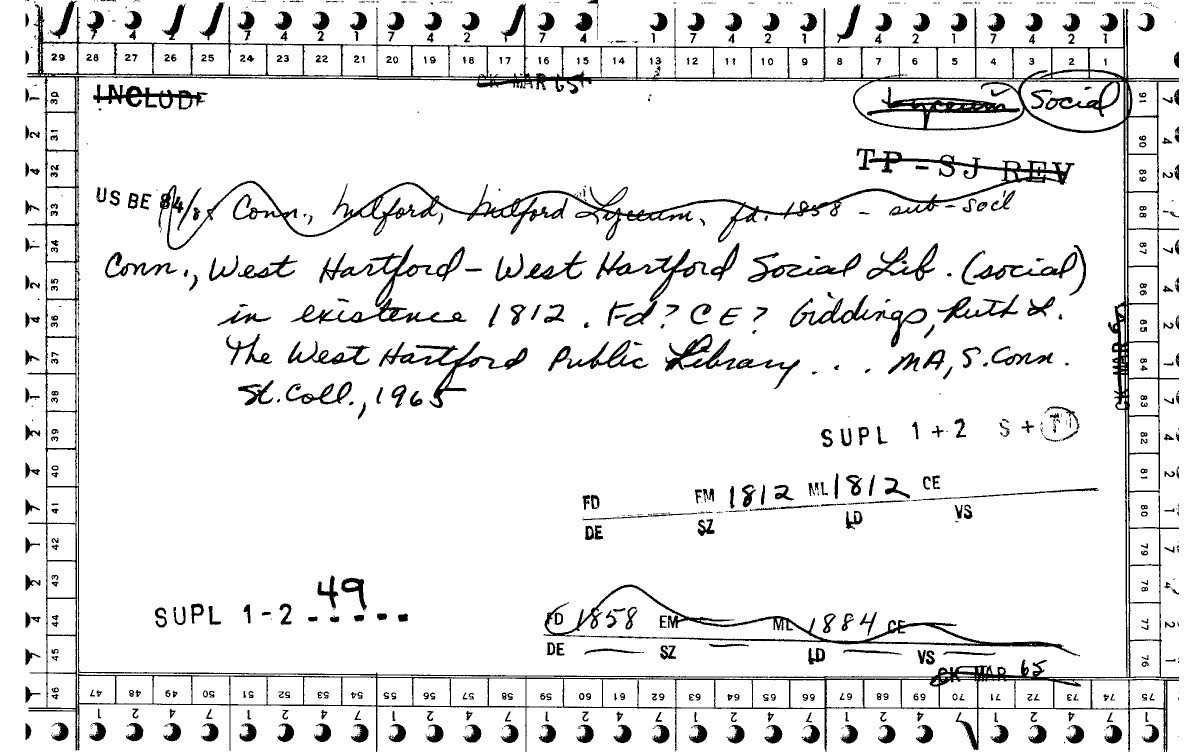 7 4 2 1 7 4 2 1 7 4 2 1 7 4 1 7 4 2 1 7 4 2 1 7 4 2 1
29 28 27 26 25 24 23 22 21 20 19 18 17 16 15 14 13 12 11 10 9 8 7 6 5 4 3 2 1
CK MAR 65
INCLUDE
Lyceum Social
TP - SJ REV
US BE 84/8 Conn., Milford, Milford Lyceum, fd. 1858 - sub-soc'l
Conn., West Hartford - West Hartford Social Lib. (social)
in existence 1812. Fd? CE? Giddings, Ruth L.
The West Hartford Public Library . . . MA, S. Conn.
St. Coll., 1965
CK MAR 65
SUPL 1+2 S+
FD EM 1812 ML 1812 CE
DE SZ LD VS
SUPL 1-2 49
FD 1858 EM ML 1884 CE
DE SZ LD VS
CK MAR 65
30 31 32 33 34 35 36 37 38 39 40 41 42 43 44 45 46
91 90 89 88 87 86 85 84 83 82 81 80 79 78 77 76
47 48 49 50 51 52 53 54 55 56 57 58 59 60 61 62 63 64 65 66 67 68 69 70 71 72 73 74 75